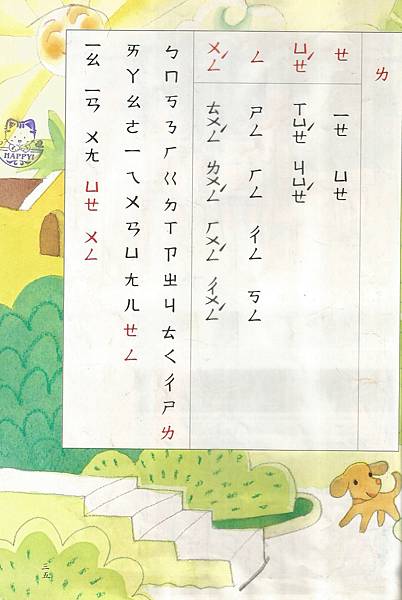 ㄌ
ㄝ ㄧㄝ ㄩㄝ
ㄩㄝˊ ㄒㄩㄝˊ ㄐㄩㄝˊ
ㄥ ㄕㄥ ㄏㄥ ㄔㄥ ㄎㄥ
ㄨㄥˊ ㄊㄨㄥˊ ㄌㄨㄥˊ ㄏㄨㄥˊ ㄔㄨㄥˊ
ㄅ ㄇ ㄎ ㄋ ㄏ ㄍ ㄉ ㄒ ㄗ ㄓ ㄐ ㄊ ㄑ ㄔ ㄕ ㄌ
ㄞ ㄚ ㄠ ㄜ ㄧ ㄟ ㄨ ㄢ ㄩ ㄤ ㄦ ㄝ ㄥ
ㄧㄠ ㄧㄢ ㄨㄤ ㄩㄝ ㄨㄥ
HAPPY!
三五